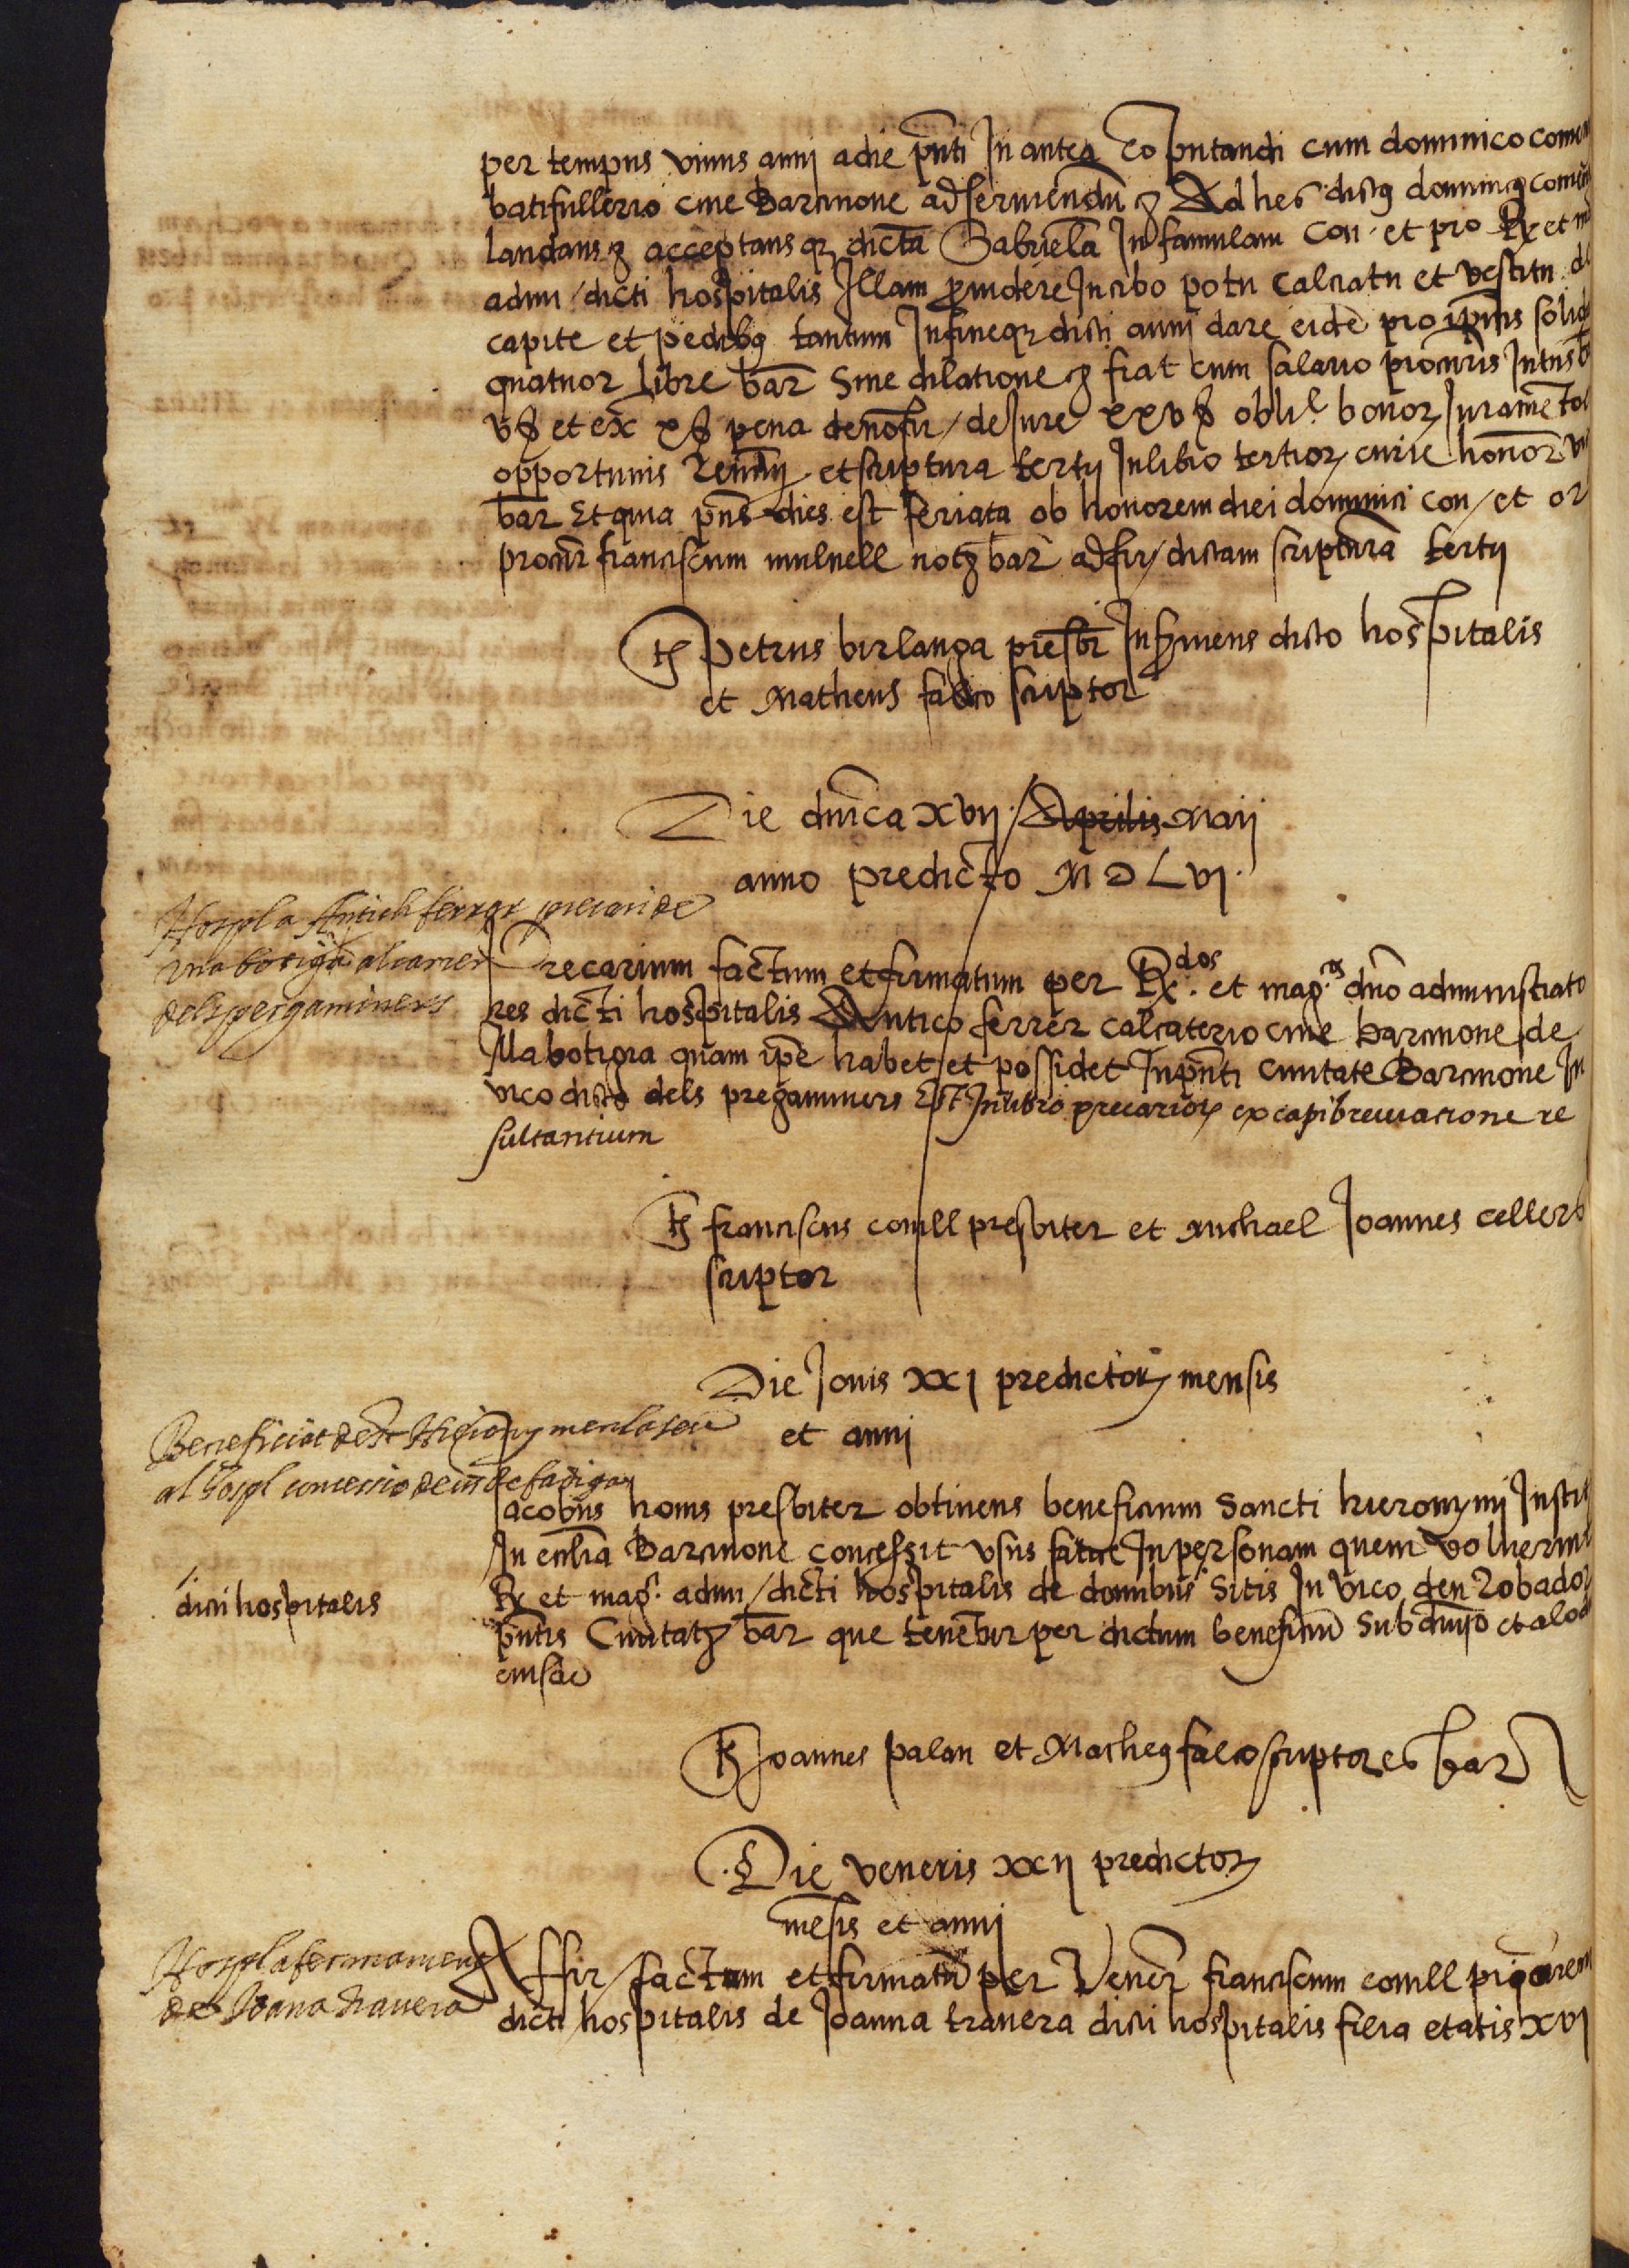 per tempus vnius anni a die pñti In antea Coputandi cum dominico
batifullerio ciue Barcinone ad seruiendũ Ad hec dictꝰ dominicꝰ
laudans acceptansqꝫ dictã Gabrielã In famulam Con et pro Rx et
adm / dicti hospitalis Illam ꝓuidere In cibo potu Calciatu et vestitu
capite et pedibꝰ tantum In fineqꝫ dicti anni dare eidẽ pro
quatuor libre bar Sine dilatione fiat cum salario procuris Intus
vß et ex xß pena de non fir / de iure xxvß obli bonoꝝ Iuramẽto
opportunis et scriptura tertij In libro tertioꝝ curie honor
bar Et quia pñs dies est feriata ob honorem diei dominici con / et or
procur franciscum mulnell not bar ad fir / dictam scripturã tertij
Ts Petrus birlanga presbr In seruiens dicto hospitalis
et Matheus falco scriptor
Die dñica xvij Aprilis maij
anno predicto M D L vj
Hospl a Antich ferrer precari de
vna botiga al carrer
dels pergaminers
Precarium factum et firmatum per Rx.dos et mag.cos dño administrato
res dicti hospitalis Antico ferrer calcaterio ciue barcinone de
Illa botigia quam ipe habet et possidet In pñti Ciuitate Barcinone In
vico dicto dels pregaminers Est In libro precarioꝝ ex capibreuiatione re
sultantium
Ts franciscus comll presbiter et michael Joannes cellers
scriptor
Die Jouis xxj predictoꝝ mensis
et anni
Beneficiat de St
al hospl concessio de us de fadiga
Jacobus homs presbiter obtinens beneficium Sancti hieronymi Instit
In ecclia Barcinone concessit vsus fatice In personam quem voluerint
Rx et mag. adm / dicti hospitalis de domibus Sitis In vico den Robador
dicti hospitalis
pñtis Ciuitatꝫ bar que tenẽtur per dictum beneficiũ Sub dnio et alod
eiusde
Ts Joannes palau et Matheꝰ falco scriptores bar
Die veneris xxij predictoꝝ
mẽsis et anni
Hospl afermament
de Joana trauera
Affir / factum et firmatũ per Vener franciscum comll priorem
dicti hospitalis de Joanna trauera dicti hospitalis filia etatis xvj